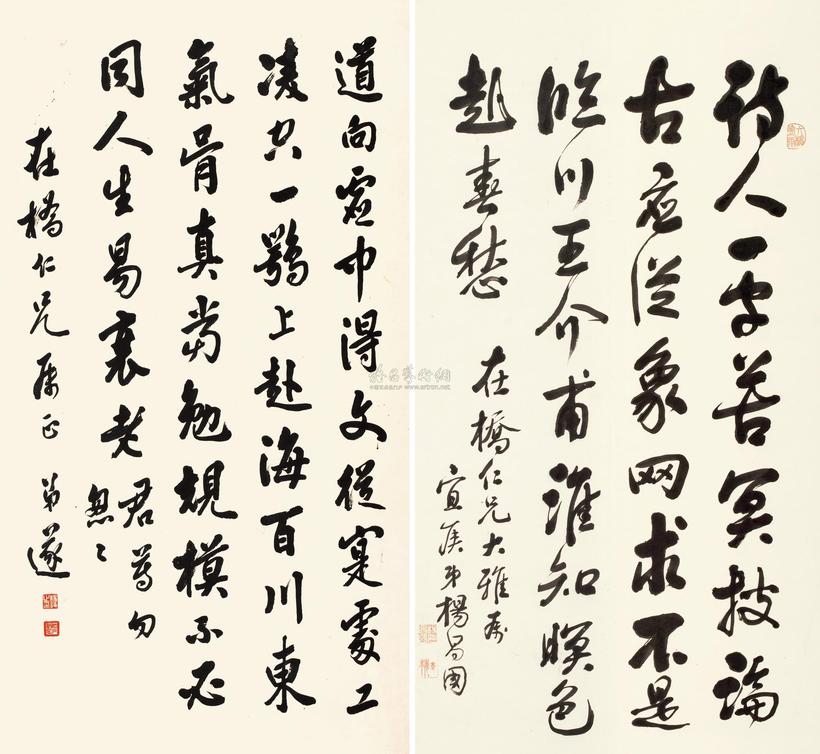 詩人一字苦冥搜論
古應從象罔求不是
臨川王介甫誰知暝色
赴春愁
在橋仁兄大雅屬
宜矦弟楊昌國
道向虛中得文從實處工
凌空一鶚上赴海百川東
氣骨真當勉規模不必
同人生易衰老
君等勿
怱々
在橋仁兄屬正 弟遂